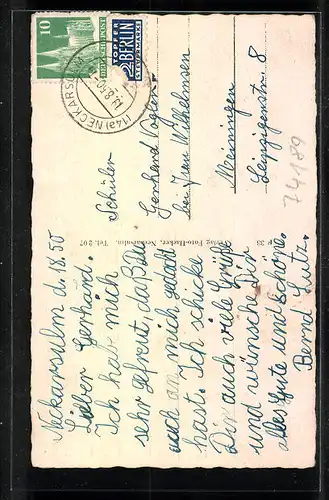 Neckarsulm d. 1.8.50
Lieber Gerhard.
Ich hab mich
sehr gefreut, daß Du
auch an mich gedacht
hast. Ich schicke
Dir auch viele Grüße
und wünsche Dir
alles Gute und Schöne.
Bernd Lutz.
Verlag Foto-Hacker, Neckarsulm. Tel. 207
10
DEUTSCHE POST
NOTOPFER
2 BERLIN
STEUERMARKE
(14a) NECKARSULM
Schüler
Gerhard
bei Frau Wilhelmsen
Meiningen
Leipzigerstr. 8
74189